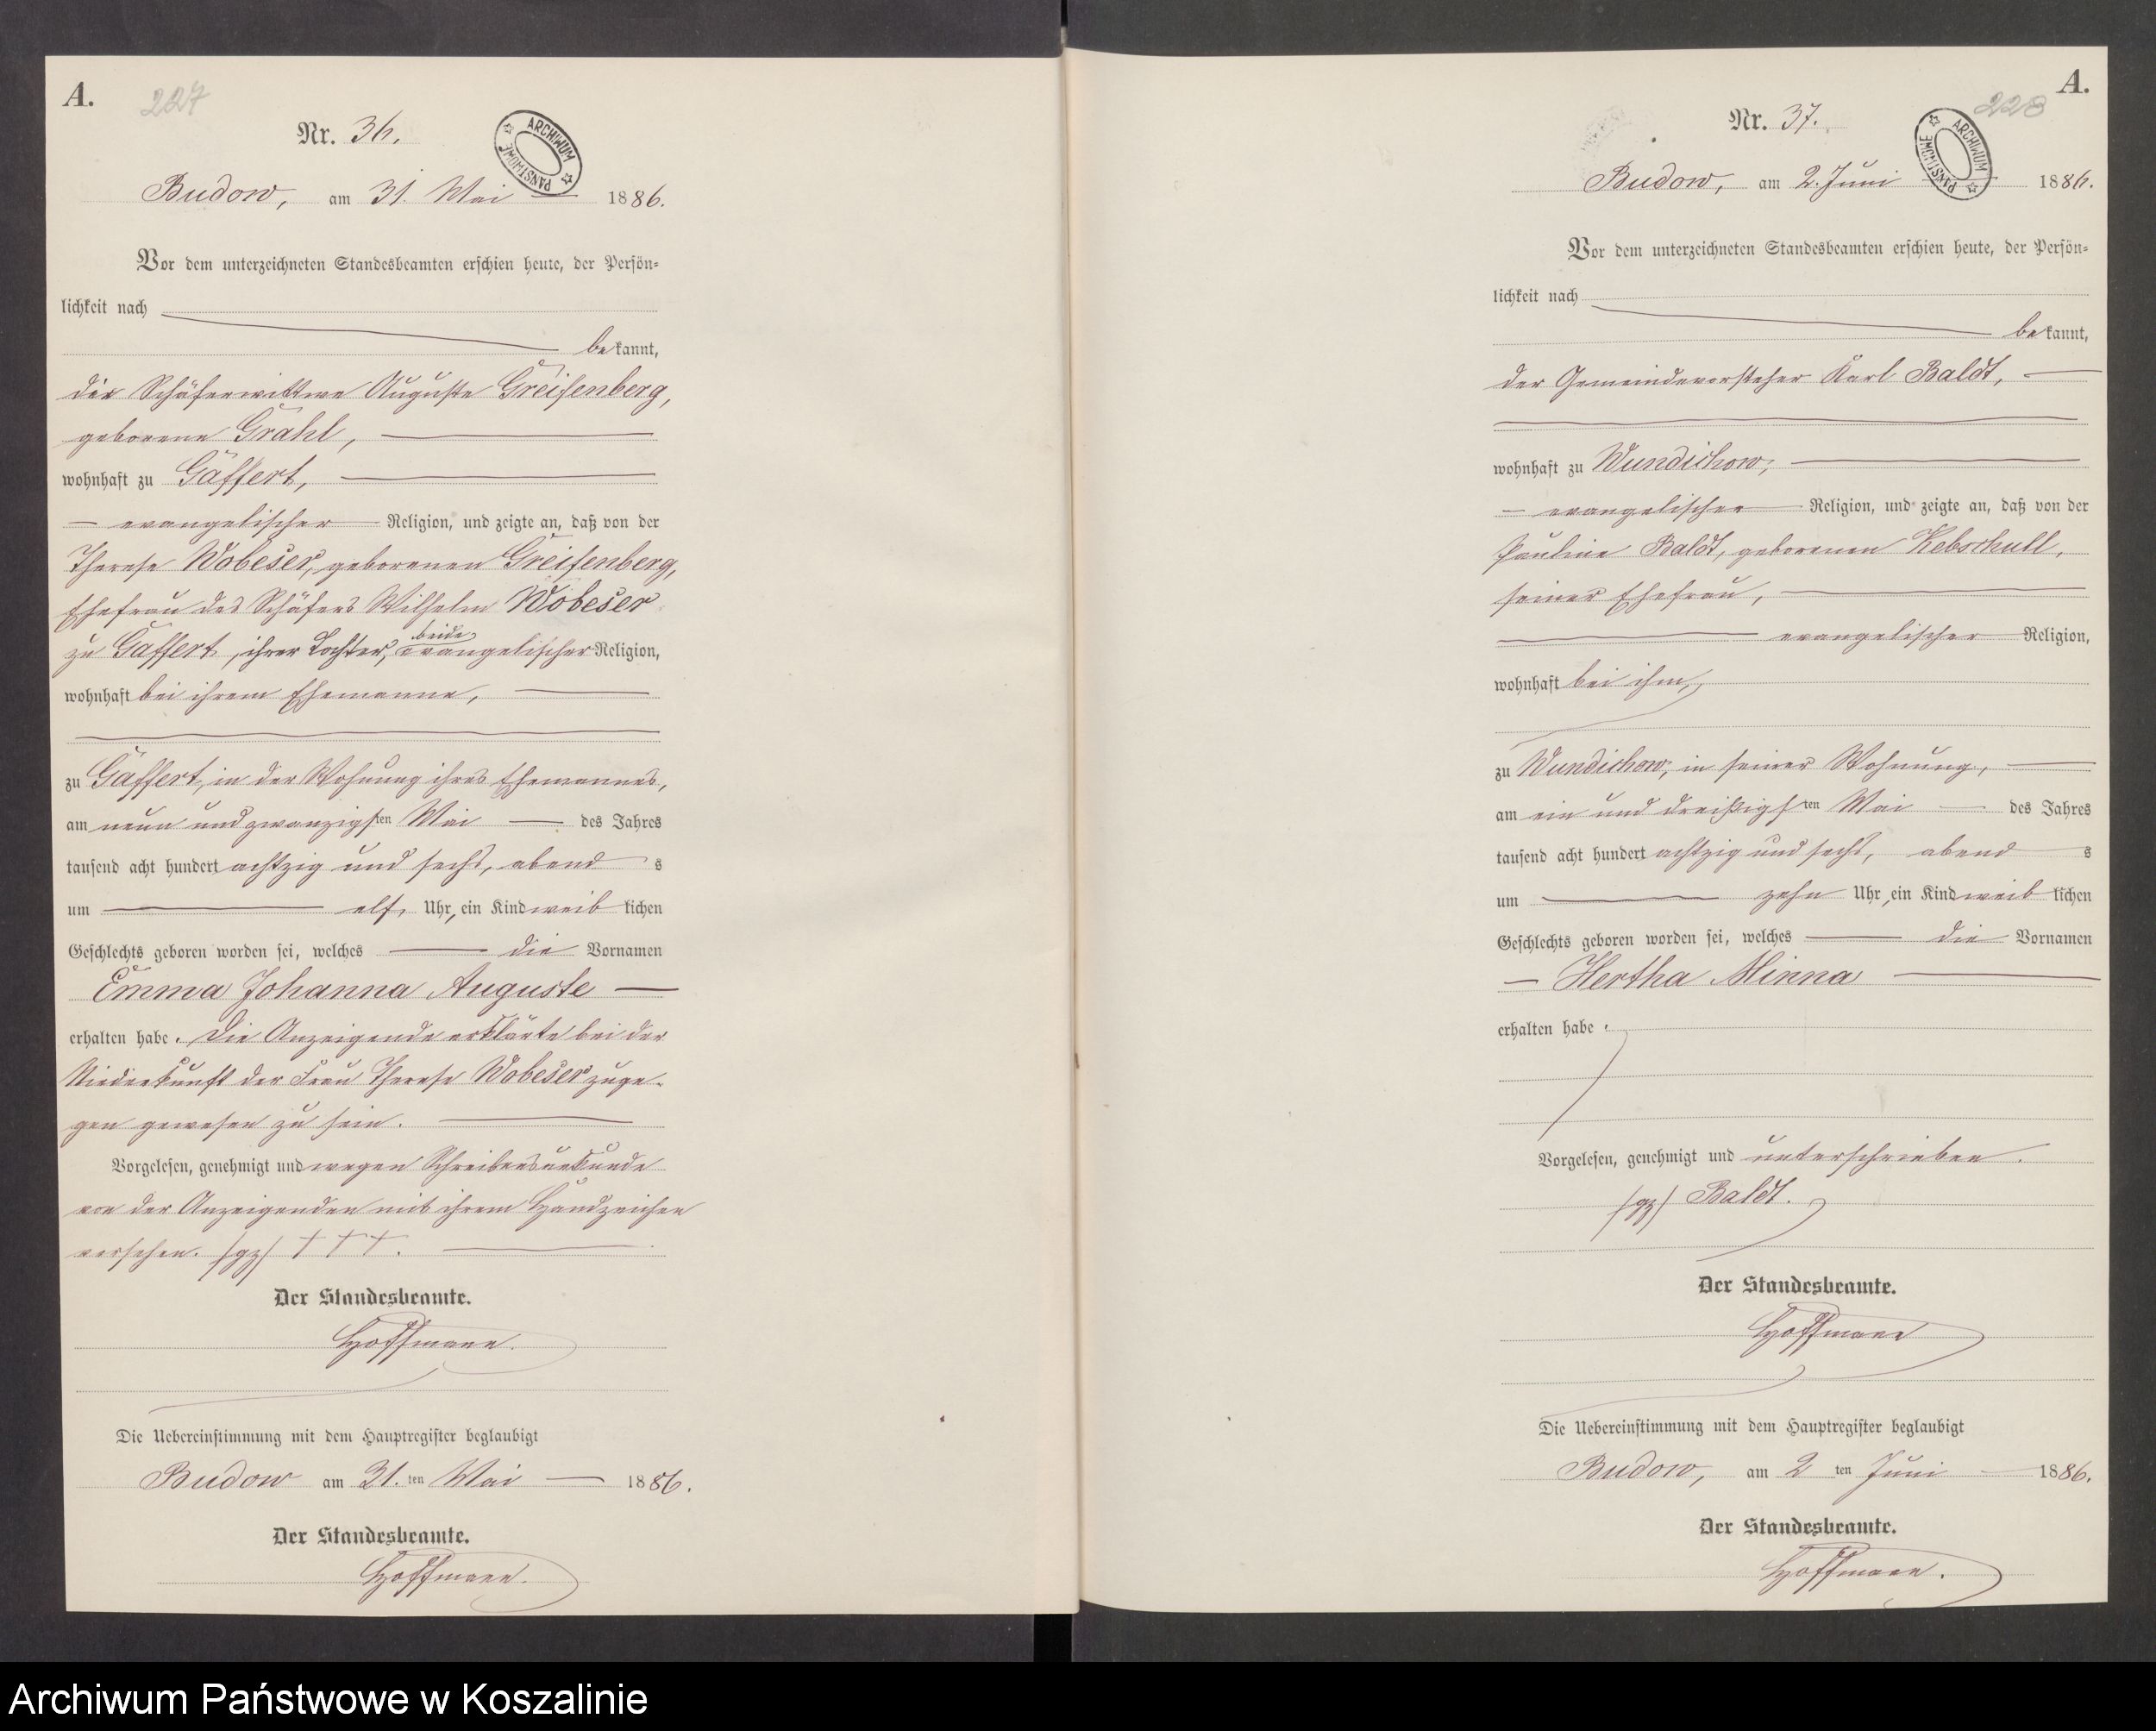 A.
227
Nr. 36.
ARCHIWUM PAŃSTWOWE
Budow, am 31. Mai 1886.
Vor dem unterzeichneten Standesbeamten erschien heute, der Persön-
lichkeit nach
bekannt,
die Schäferwittwe Auguste Greifenberg,
geborene Grahl,
wohnhaft zu Gaffert,
evangelischer Religion, und zeigte an, daß von der
Therese Wobeser, geborenen Greifenberg,
Ehefrau des Schäfers Wilhelm Wobeser
beide
zu Gaffert, ihrer Tochter, evangelischer Religion,
wohnhaft bei ihrem Ehemanne,
zu Gaffert, in der Wohnung ihres Ehemannes,
am neun und zwanzigsten Mai des Jahres
tausend acht hundert achtzig und sechs, abends
um elf Uhr, ein Kind weiblichen
Geschlechts geboren worden sei, welches die Vornamen
Emma Johanna Auguste
erhalten habe. Die Anzeigende erklärte bei der
Niederkunft der Frau Therese Wobeser zuge-
gen gewesen zu sein.
Vorgelesen, genehmigt und wegen Schreibensunkunde
von der Anzeigenden mit ihrem Handzeichen
versehen. /gz/ † † †.
Der Standesbeamte.
Hoffmann.
Die Uebereinstimmung mit dem Hauptregister beglaubigt
Budow am 31.ten Mai 1886.
Der Standesbeamte.
Hoffmann.
A.
228
Nr. 37.
ARCHIWUM PAŃSTWOWE
Budow, am 2. Juni 1886.
Vor dem unterzeichneten Standesbeamten erschien heute, der Persön-
lichkeit nach
bekannt,
der Gemeindevorsteher Karl Baldt,
wohnhaft zu Wundichow,
evangelischer Religion, und zeigte an, daß von der
Pauline Baldt, geborenen Kebschull,
seiner Ehefrau,
evangelischer Religion,
wohnhaft bei ihm,
zu Wundichow, in seiner Wohnung,
am ein und dreißigsten Mai des Jahres
tausend acht hundert achtzig und sechs, abends
um zehn Uhr, ein Kind weiblichen
Geschlechts geboren worden sei, welches die Vornamen
Hertha Minna
erhalten habe.
Vorgelesen, genehmigt und unterschrieben.
/gz/ Baldt.
Der Standesbeamte.
Hoffmann
Die Uebereinstimmung mit dem Hauptregister beglaubigt
Budow, am 2 ten Juni 1886.
Der Standesbeamte.
Hoffmann.
Archiwum Państwowe w Koszalinie